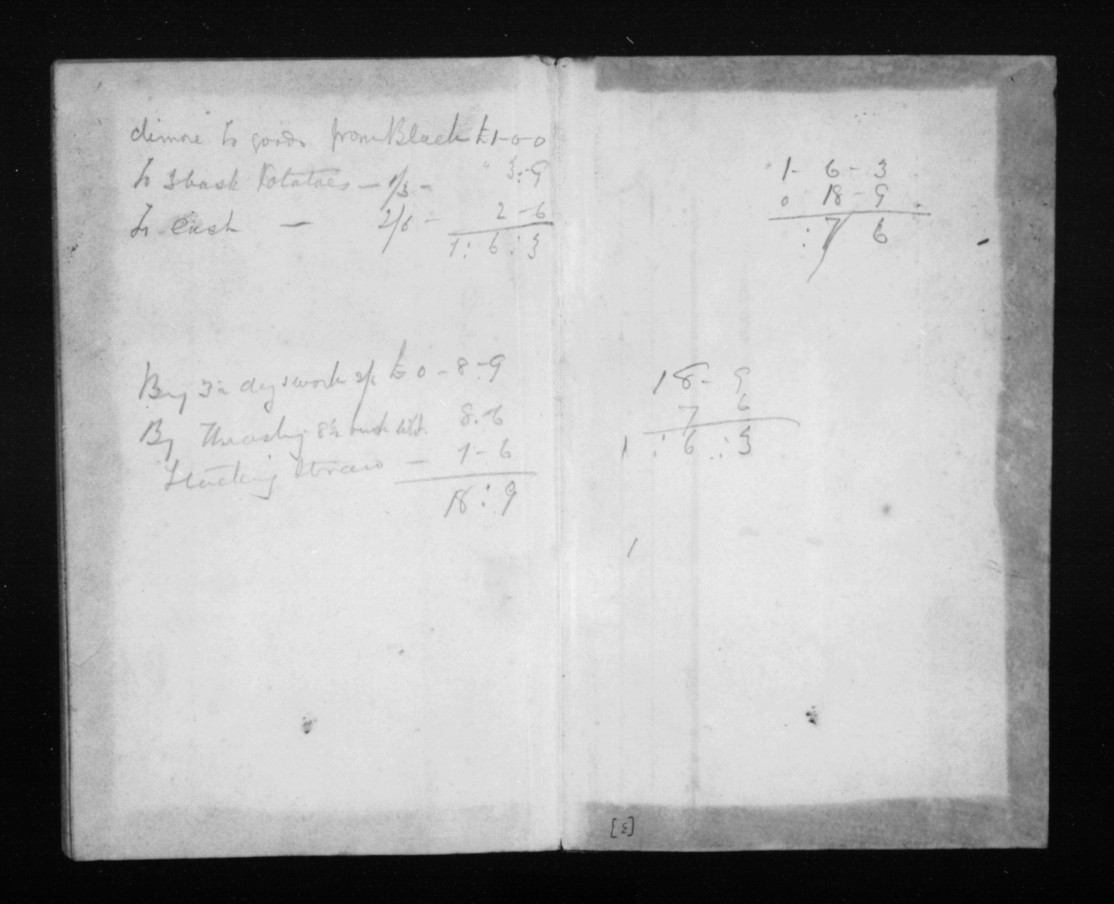 to goods from Black £ 1-0-0
To 3 bush Potatoes - 1/3 - " 3:-9
To Cash - 2/6 - 2-6
1: 6: 3
By days work £ 0-8-9
By Thrashing 8½ bush 8.-6
Stacking straw - 1-6
18:9
1- 6- 3
0 18-9
: 7/ 6
18- 9
7 6
1: 6.:3
1
[3]